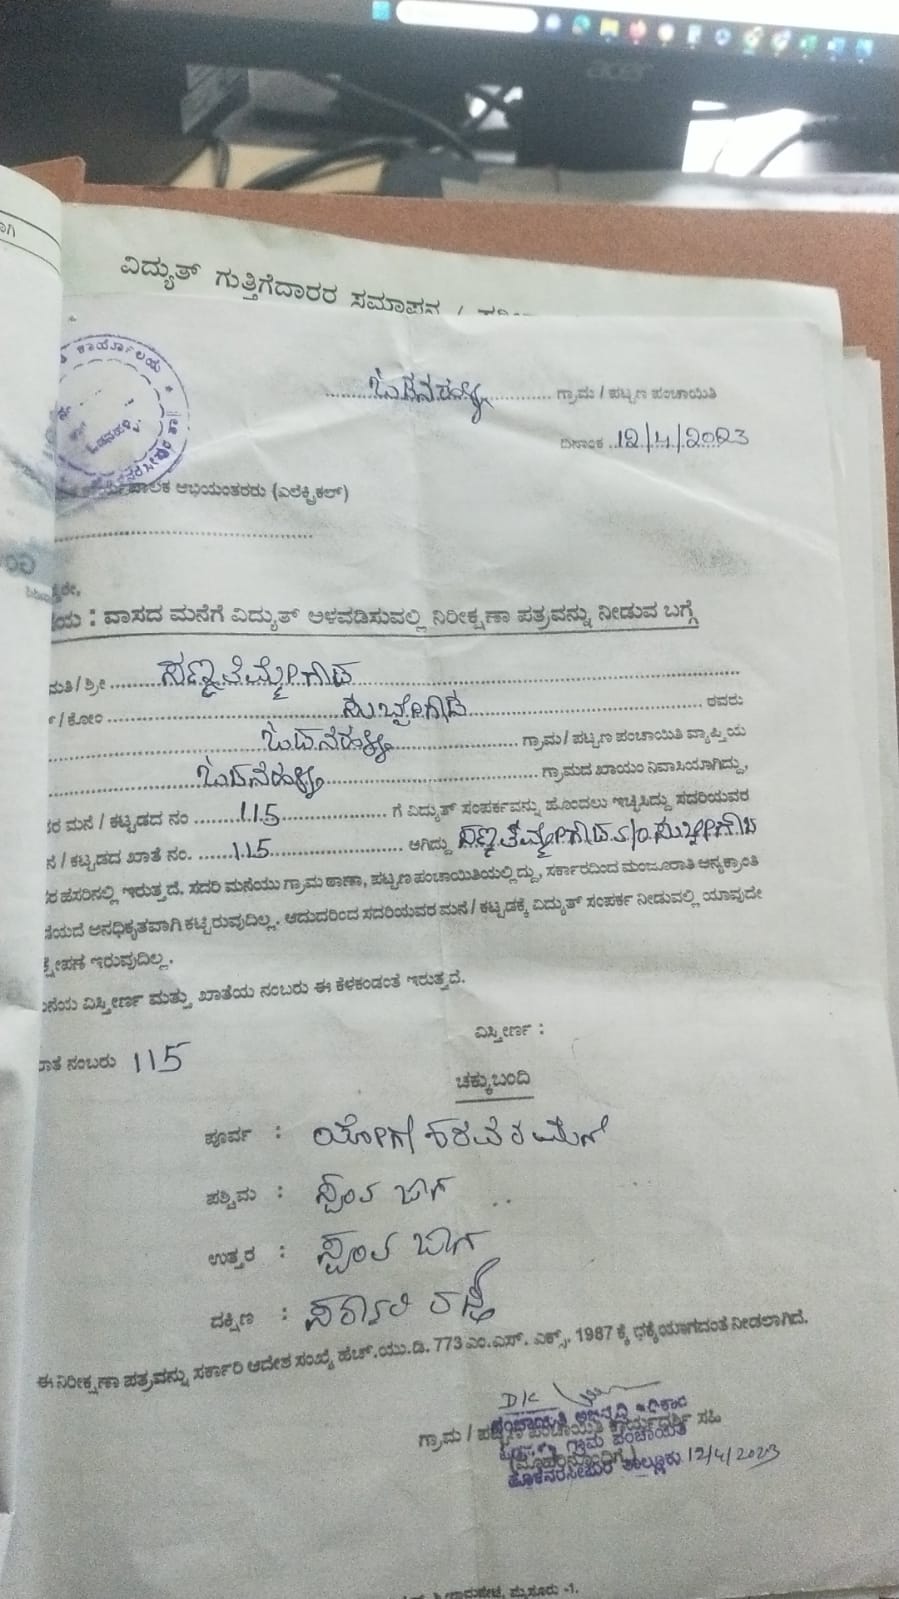 ವಿದ್ಯುತ್ ಗುತ್ತಿಗೆದಾರರ ಸಮಾಪನ /
ಕಾರ್ಯಾಲಯ
ಗ್ರಾಮ / ಪಟ್ಟಣ ಪಂಚಾಯಿತಿ
ದಿನಾಂಕ 12/4/2023
ಅಭಿಯಂತರರು (ಎಲೆಕ್ಟ್ರಿಕಲ್)
: ವಾಸದ ಮನೆಗೆ ವಿದ್ಯುತ್ ಅಳವಡಿಸುವಲ್ಲಿ ನಿರೀಕ್ಷಣಾ ಪತ್ರವನ್ನು ನೀಡುವ ಬಗ್ಗೆ
ಮತಿ / ಶ್ರೀ ಸಣ್ಣತಿಮ್ಮೇಗೌಡ
/ ಕೋಂ ಸುಬ್ಬೇಗೌಡ ರವರು
ಗ್ರಾಮ / ಪಟ್ಟಣ ಪಂಚಾಯಿತಿ ವ್ಯಾಪ್ತಿಯ
ಗ್ರಾಮದ ಖಾಯಂ ನಿವಾಸಿಯಾಗಿದ್ದು,
ರ ಮನೆ / ಕಟ್ಟಡದ ನಂ 115 ಗೆ ವಿದ್ಯುತ್ ಸಂಪರ್ಕವನ್ನು ಹೊಂದಲು ಇಚ್ಛಿಸಿದ್ದು ಸದರಿಯವರ
/ ಕಟ್ಟಡದ ಖಾತೆ ನಂ. 115 ಆಗಿದ್ದು ಸಣ್ಣತಿಮ್ಮೇಗೌಡ S/o ಸುಬ್ಬೇಗೌಡ
ರ ಹೆಸರಿನಲ್ಲಿ ಇರುತ್ತದೆ. ಸದರಿ ಮನೆಯು ಗ್ರಾಮ ಠಾಣಾ, ಪಟ್ಟಣ ಪಂಚಾಯಿತಿಯಲ್ಲಿದ್ದು, ಸರ್ಕಾರದಿಂದ ಮಂಜೂರಾತಿ ಅನ್ಯಕ್ರಾಂತಿ
ಅನಧಿಕೃತವಾಗಿ ಕಟ್ಟಿರುವುದಿಲ್ಲ. ಆದುದರಿಂದ ಸದರಿಯವರ ಮನೆ / ಕಟ್ಟಡಕ್ಕೆ ವಿದ್ಯುತ್ ಸಂಪರ್ಕ ನೀಡುವಲ್ಲಿ ಯಾವುದೇ
ಕ್ಷೇಪಣೆ ಇರುವುದಿಲ್ಲ.
ನೆಯ ವಿಸ್ತೀರ್ಣ ಮತ್ತು ಖಾತೆಯ ನಂಬರು ಈ ಕೆಳಕಂಡಂತೆ ಇರುತ್ತದೆ.
ವಿಸ್ತೀರ್ಣ :
ಾತೆ ನಂಬರು 115
ಚಕ್ಕುಬಂದಿ
ಪೂರ್ವ :
ಪಶ್ಚಿಮ : ಸ್ವಂತ ಜಾಗ
ಉತ್ತರ : ಸ್ವಂತ ಜಾಗ
ದಕ್ಷಿಣ : ಸರ್ಕಾರಿ ರಸ್ತೆ
ಈ ನಿರೀಕ್ಷಣಾ ಪತ್ರವನ್ನು ಸರ್ಕಾರಿ ಆದೇಶ ಸಂಖ್ಯೆ ಹೆಚ್.ಯು.ಡಿ. 773 ಎಂ.ಎಸ್. ಎಕ್ಸ್. 1987 ಕ್ಕೆ ಧಕ್ಕೆಯಾಗದಂತೆ ನೀಡಲಾಗಿದೆ.
ಗ್ರಾಮ / ಪಟ್ಟಣ ಪಂಚಾಯಿತಿ ಕಾರ್ಯದರ್ಶಿ ಸಹಿ
ಗ್ರಾಮ ಪಂಚಾಯಿತಿ
ತಾಲ್ಲೂಕು 12/4/2023
ಮೈಸೂರು -1.